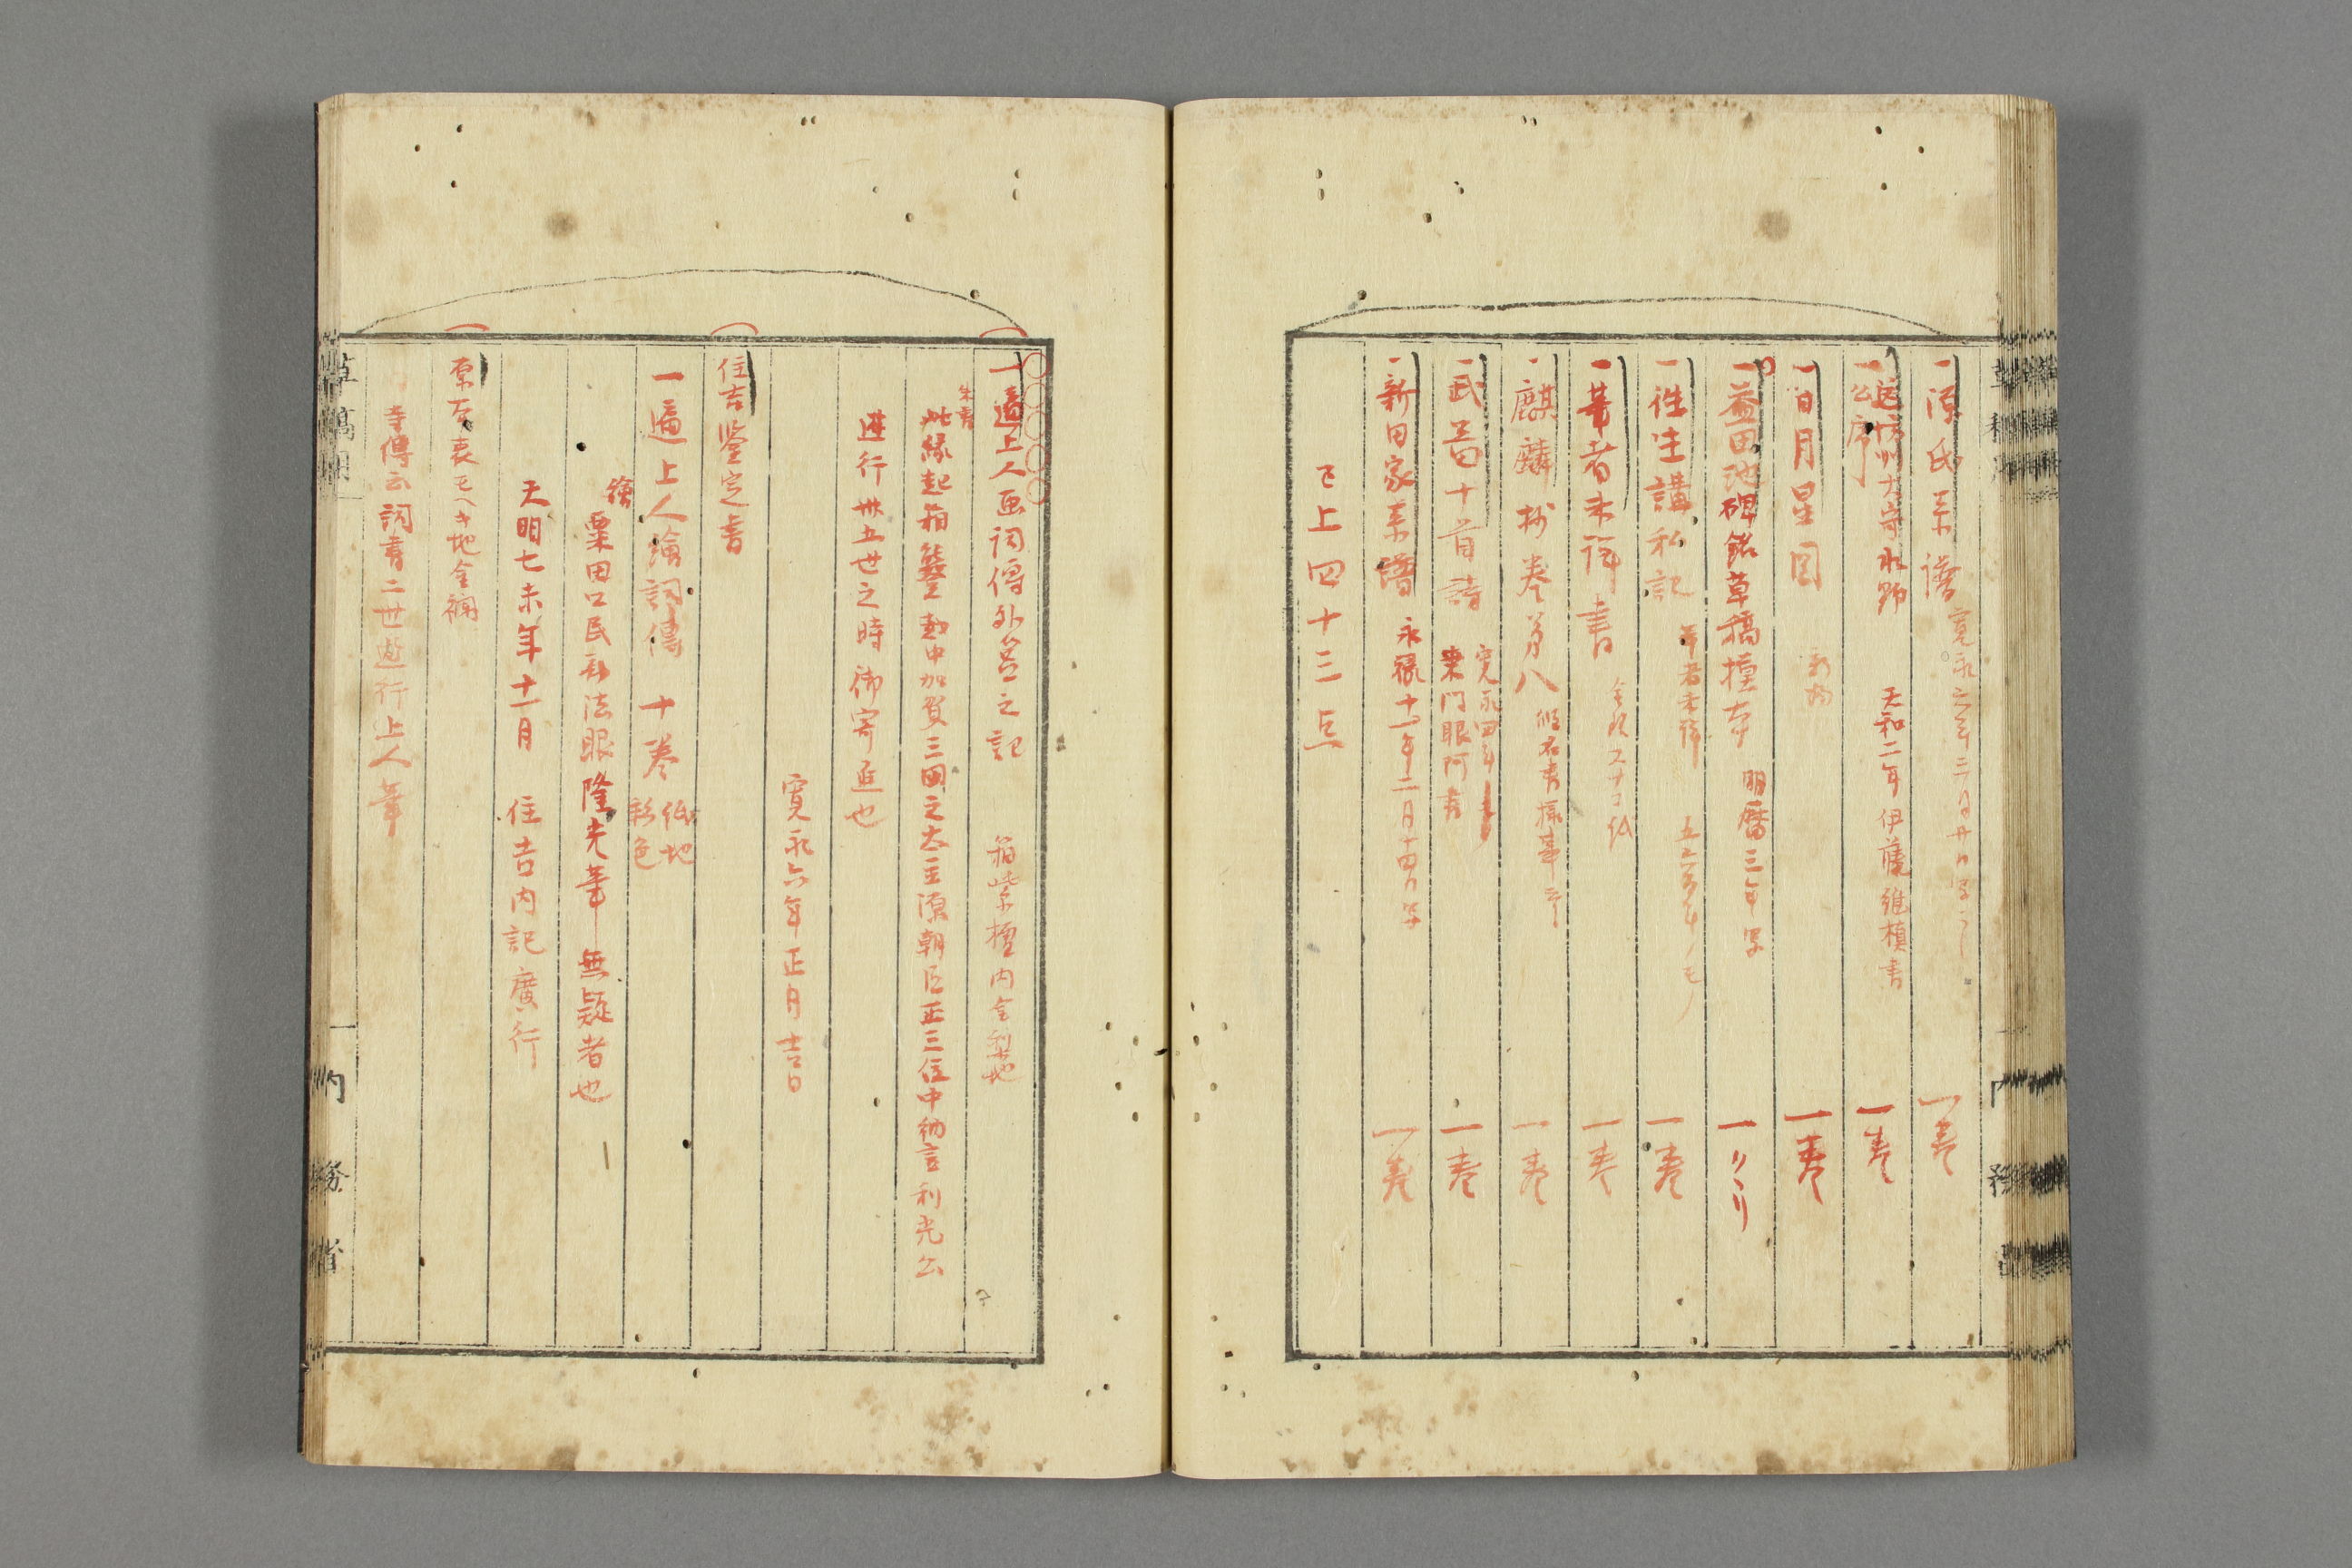 一源氏系譜 寛永二年三月廿日 一巻
一送防州太守水野公序 天和二年 伊藤維楨書 一巻
一日月星図 一巻
一益田池碑銘草稿摸本 明暦三年写 一〃〃
一往生講私記 筆者未詳 一巻
一筆者未詳書 一巻
一麒麟抄巻第八 一巻
一武昌十首詩 寛永四年 桑門眼阿書 一巻
一新田家系譜 永禄十一年二月十四日写 一巻
已上四十三点
一遍上人画詞傳外筥之記 箱紫檀内金梨地
朱書
此縁起箱發起中加賀三国之太主源朝臣正三位中納言利光公
遊行卅五世之時御寄進也
寛永六年正月吉日
住吉鑒定書
一遍上人繪詞傳 十巻 紙地彩色
繪 粟田口民部法眼隆光筆無疑者也
天明七未年十一月 住吉内記廣行
原本表モヘキ地金襴
寺傳云詞書二世遊行上人筆
草稿用
内務省